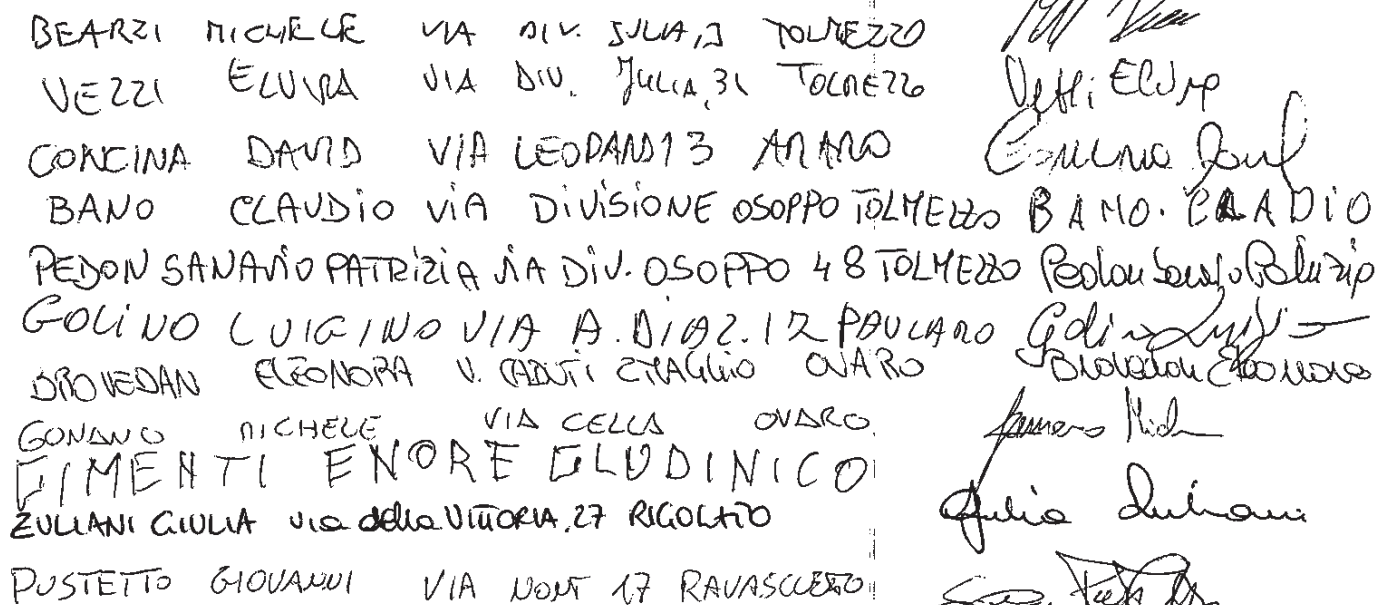 BEARZI MICHELE VIA DIV. JULIA, TOLMEZZO
VEZZI ELVIRA VIA DIV. JULIA, 31 TOLMEZZO Vezzi Elvira
CONCINA DAVID VIA LEOPARDI 3 AMARO Concina David
BANO CLAUDIO VIA DIVISIONE OSOPPO TOLMEZZO BANO CLAUDIO
PEDON SANAVIO PATRIZIA VIA DIV. OSOPPO 48 TOLMEZZO Pedon Sanavio Patrizia
GOLINO LUIGINO VIA A. DIAZ. 12 PAULARO Golino Luigino
BROVEDAN ELEONORA V. CADUTI 2 MAGGIO OVARO Brovedan Eleonora
GONANO MICHELE VIA CELLA OVARO Gonano
GIMENTI ENORE CLUDINICO
ZULIANI GIULIA via della VITTORIA, 27 RIGOLATO Giulia Zuliani
PUSTETTO GIOVANNI VIA 17 RAVASCLETTO